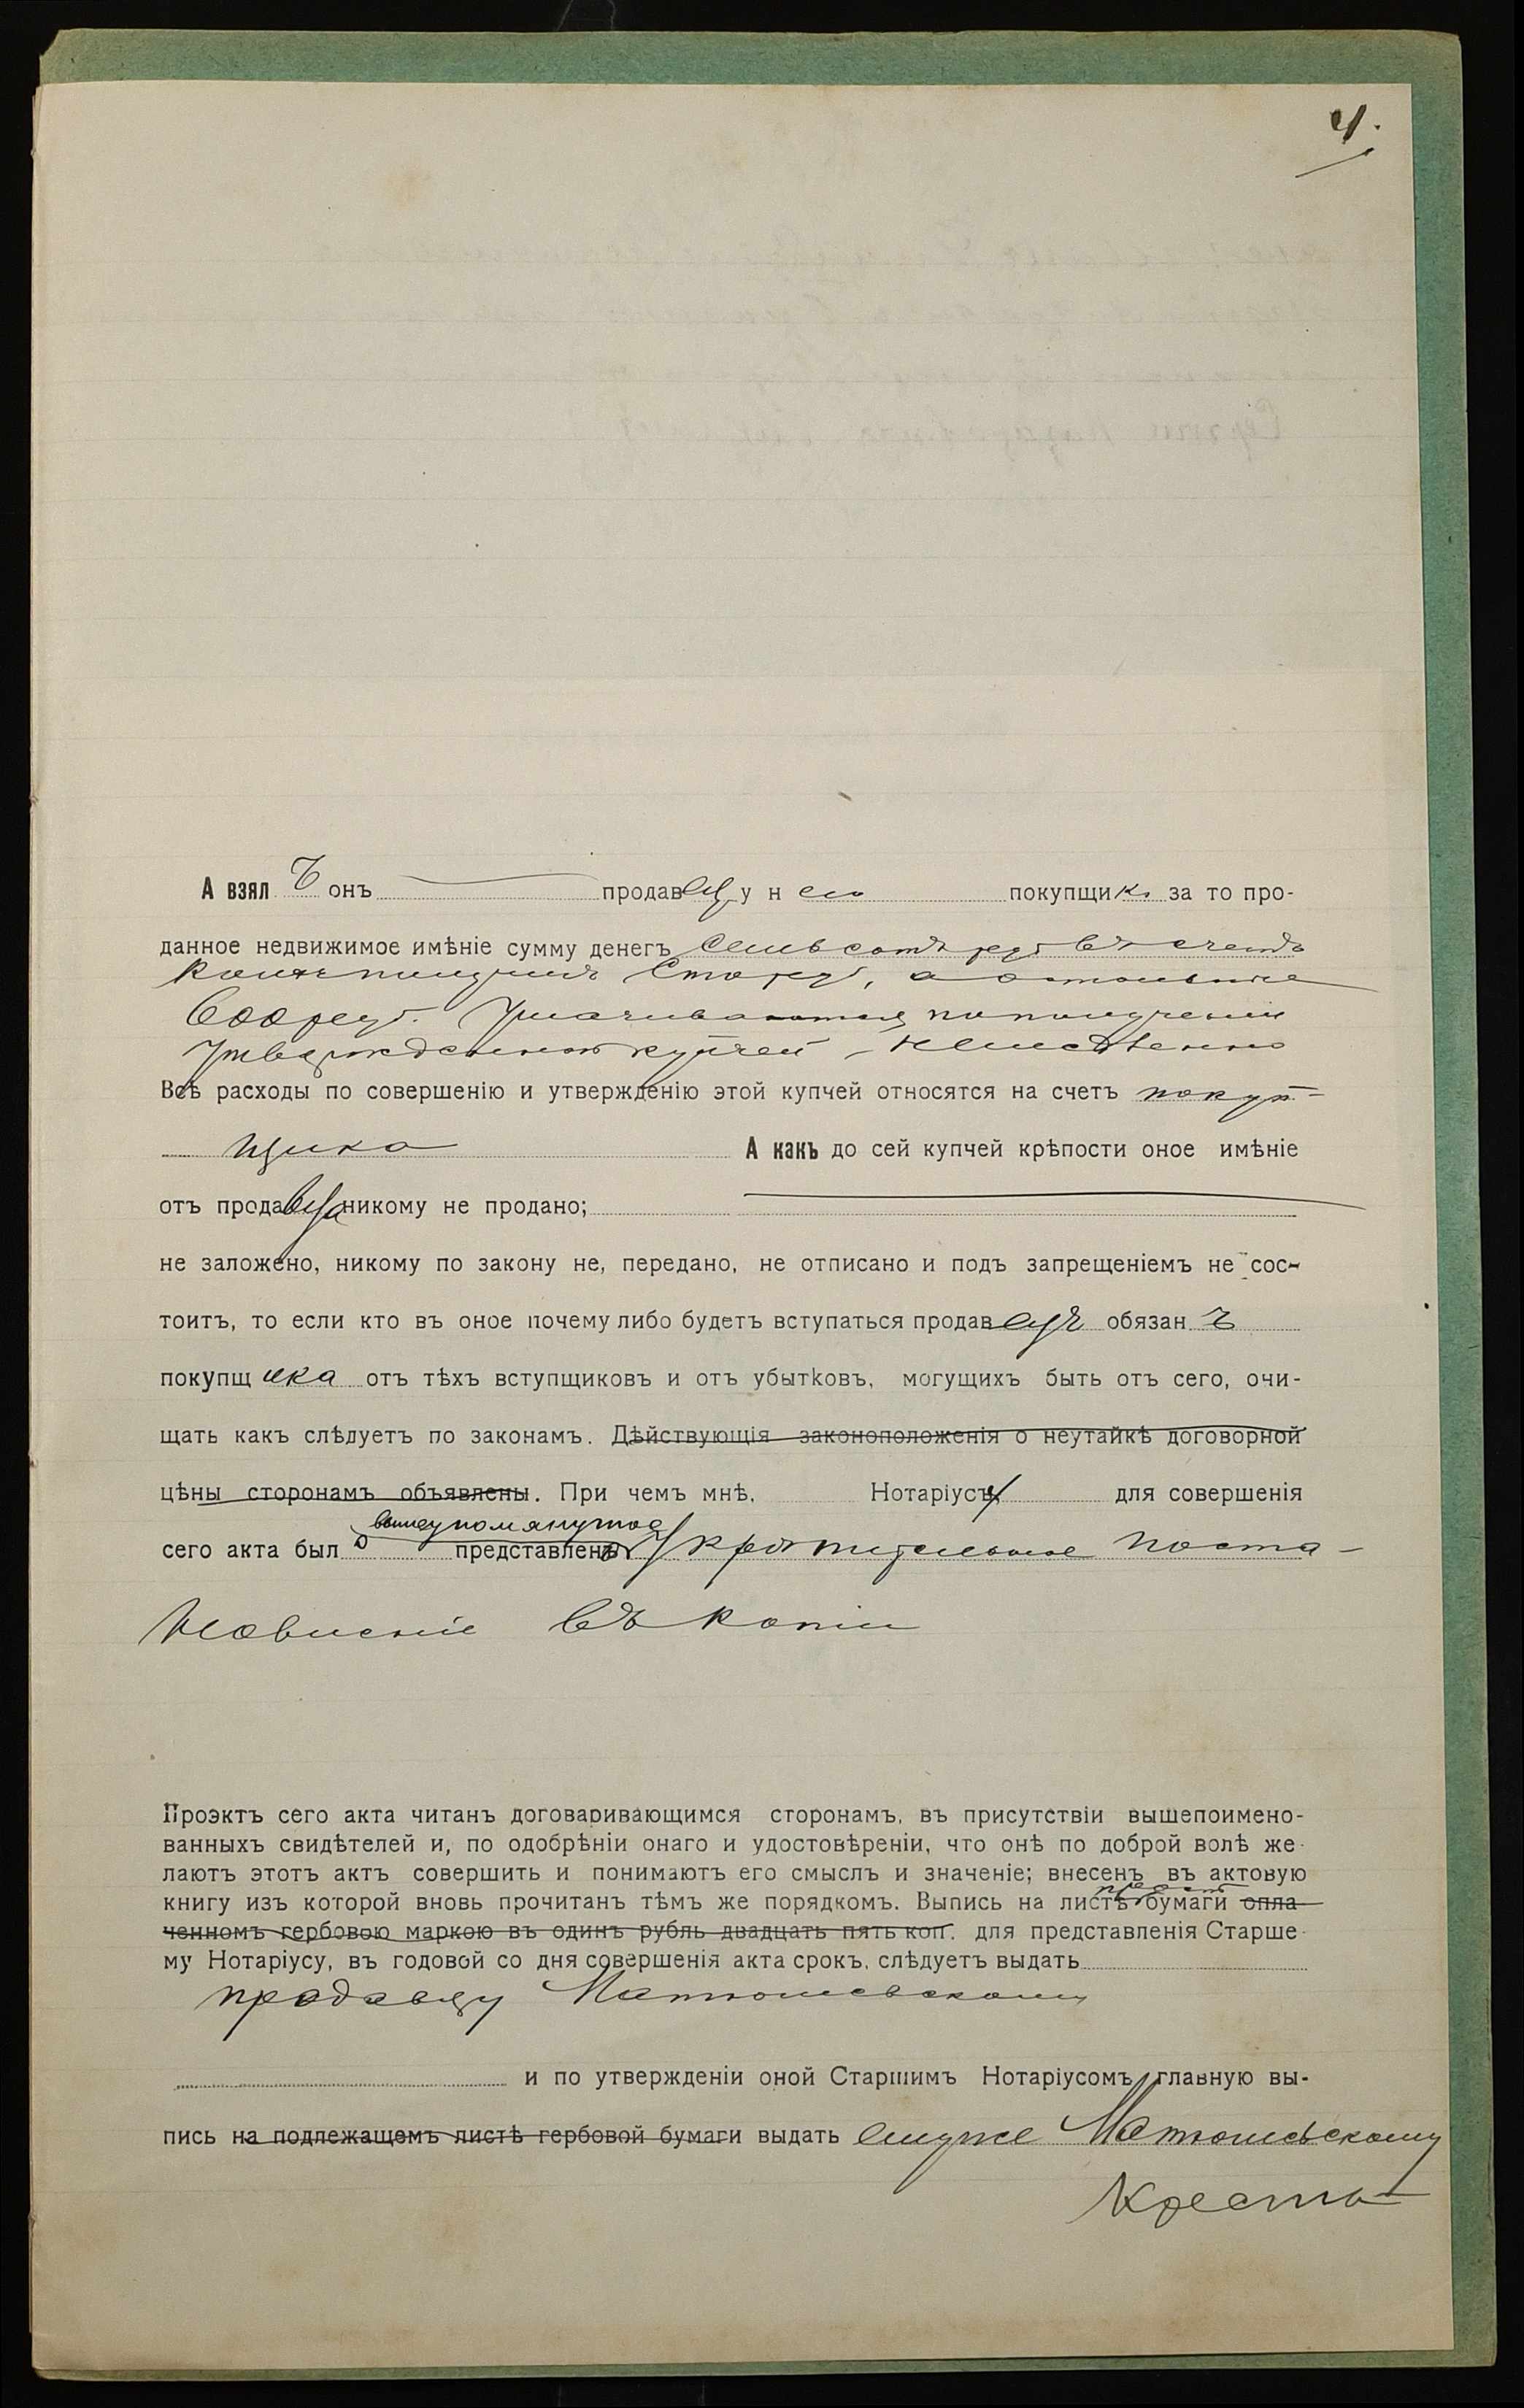 4.
А взялъ онъ продавецъ у него покупщика за то про-
данное недвижимое имѣніе сумму денегъ Семьсотъ руб въ счетъ
Сто руб, а остальные
600 руб. Уплачиваются по полученіи
Утвержденной купчей
Всѣ расходы по совершенію и утвержденію этой купчей относятся на счетъ покуп-
щика А какъ до сей купчей крѣпости оное имѣніе
отъ продавца никому не продано;
не заложено, никому по закону не, передано, не отписано и подъ запрещеніемъ не сос-
тоитъ, то если кто въ оное почему либо будетъ вступаться продавецъ обязанъ
покупщика отъ тѣхъ вступщиковъ и отъ убытковъ, могущихъ быть отъ сего, очи-
щать какъ слѣдуетъ по законамъ. Дѣйствующія законоположенія о неутайкѣ договорной
цѣны сторонамъ объявлены. При чемъ мнѣ, Нотаріусу для совершенія
вышеупомянутое
сего акта было представлено Укрѣпительное поста-
новленіе въ копіи
Проэктъ сего акта читанъ договаривающимся сторонамъ, въ присутствіи вышепоимено-
ванныхъ свидѣтелей и, по одобрѣніи онаго и удостовѣреніи, что онѣ по доброй волѣ же-
лаютъ этотъ актъ совершить и понимаютъ его смыслъ и значеніе; внесенъ въ актовую
книгу изъ которой вновь прочитанъ тѣмъ же порядкомъ. Выпись на листѣ бумаги опла-
ченномъ гербовою маркою въ одинъ рубль двадцать пять коп. для представленія Старше-
му Нотаріусу, въ годовой со дня совершенія акта срокъ, слѣдуетъ выдать
продавцу Матюшевскому
и по утвержденіи оной Старшимъ Нотаріусомъ главную вы-
пись на подлежащемъ листѣ гербовой бумаги выдать ему же Матюшевскому
Кресть